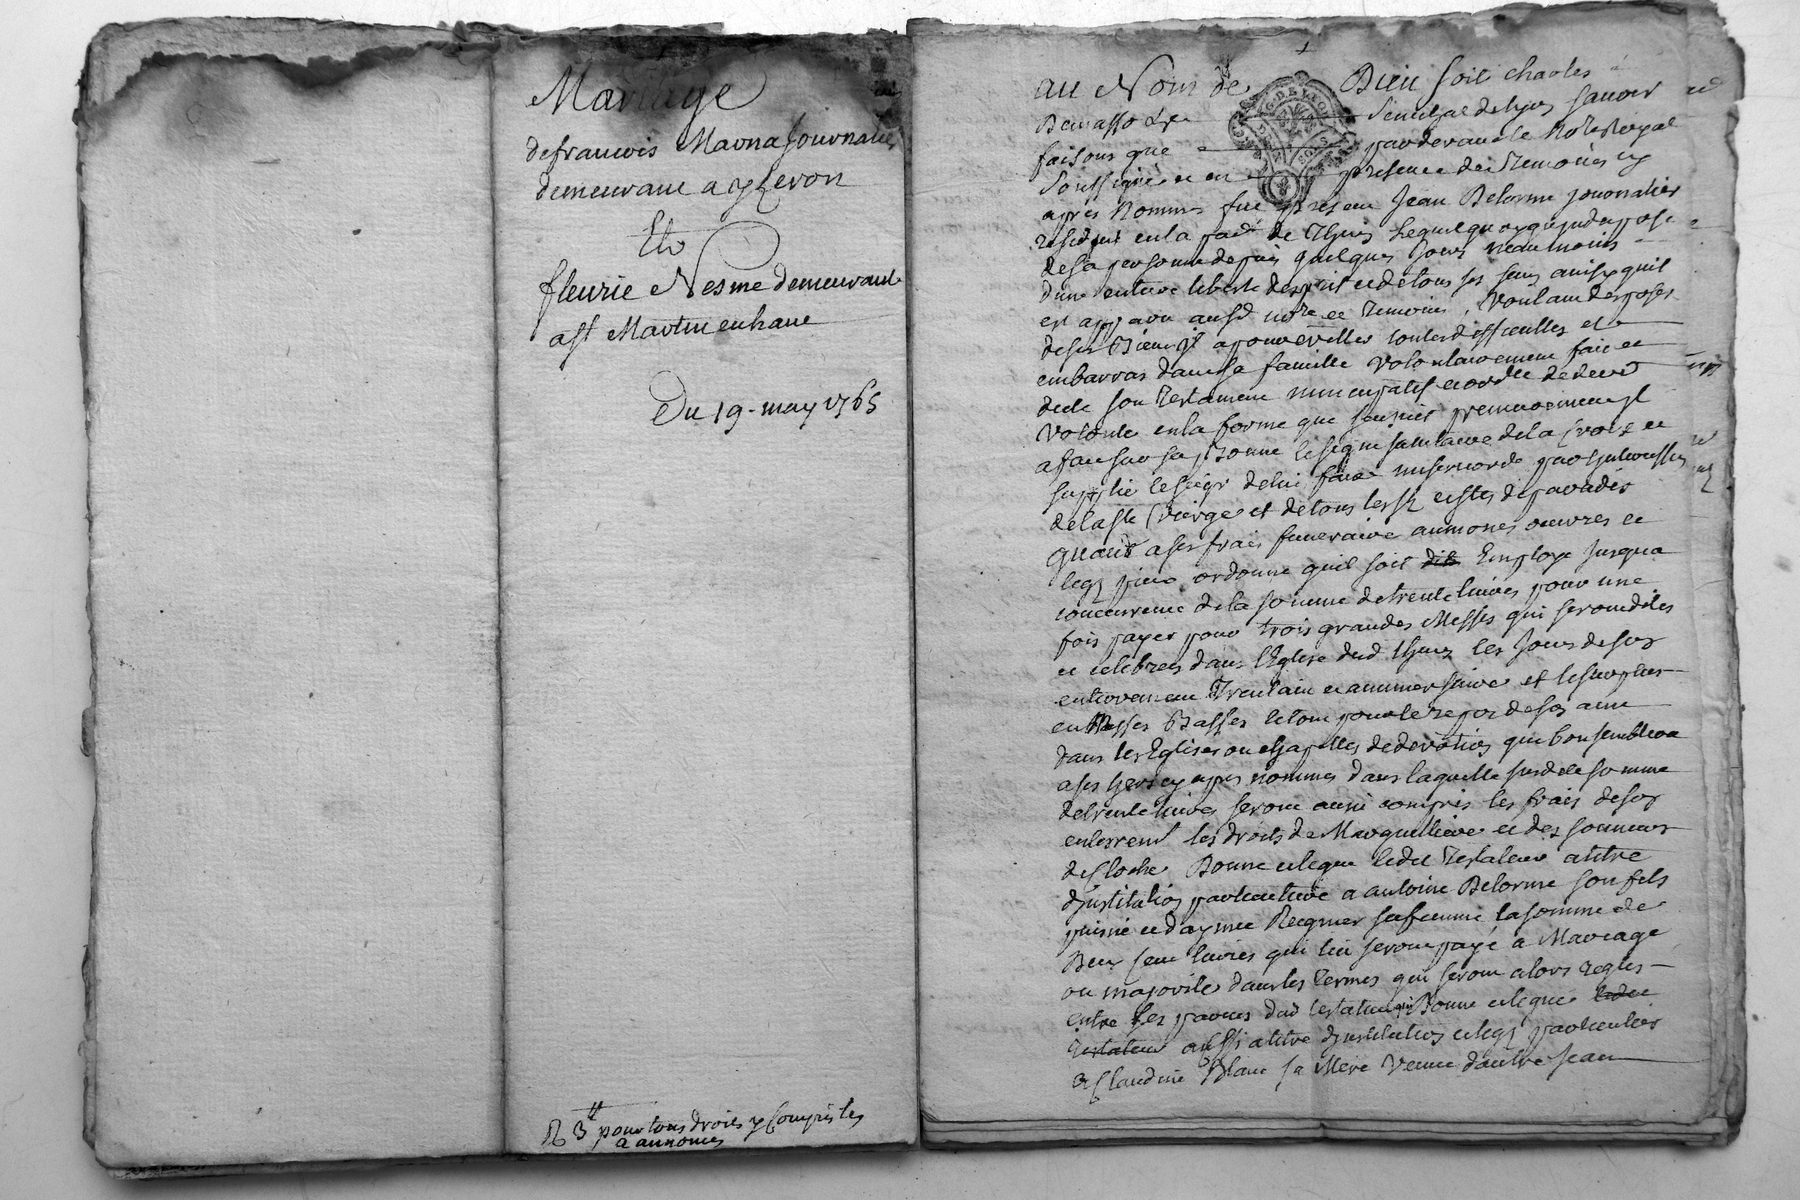 Mariage
de francois Mavna Journalier
demeurant a yzeron
Et
fleurie Nesme demeurant
a st Martin en haut
Du 19 may 1765
R 3 ₶ pour tous droits y Compris les
a annonces
au Nom de Dieu soit charles
Demasso Senechal de Lyon savoir
faisons que pardevant le Notre Royal
soussigné et en presence des Temoins cy
apres Nommes fut present Jean Delorme journalier
resident en la par de Thurins Lequel quoyque indispose
de sa personne depuis quelques jours neanmoins
dune entiere liberte desprit et de tous ses sens ainsy quil
est apparu aud notre et Temoins, Voulant disposer
de ses Biens et a pour eviter toutes difficultes et
embarras dans sa famille volontairement fait et
dicte son Testament nuncupatif et ordre de dere
Volonte en la forme que sensuit premierement il
a fait sur sa personne le signe salutaire de la Croix et
supplie le seigr de lui faire misericorde par lintercession
de la ste Vierge et de tous les sts et stes de paradis
quant a ses frais funeraire aumones oeuvres et
legs pieux ordonne quil soit dit Employe Jusqua
concurrence de la somme de trente livres pour une
fois payer pour trois grandes Messes qui seront dites
et celebrees dans l'Eglise dud Thurins les Jours de son
enterrement Trentain et anniversaire et le surplus
en Messes Basses le tout pour le repos de son ame
dans les Eglises ou chapelles de devotion que bon semblera
a ses hers cy apres nommes dans laquelle susdite somme
de trente livres seront aussi compris les frais de son
enterremt les droits de Marguilliere et des sonneurs
de Cloche Donne et legue ledit Testateur a titre
d'institution particuliere a antoine Delorme son fils
puisné et daymée Recguier sa femme la somme de
Deux Cent livres qui lui seront payé a Mariage
ou majorité dans les termes qui seront alors regles
entre les parties dud testateur Donne et legue ledit
testateur aussi a titre d'institution et legs particulier
a Claudine Blanc sa Mere veuve d'autre Jean